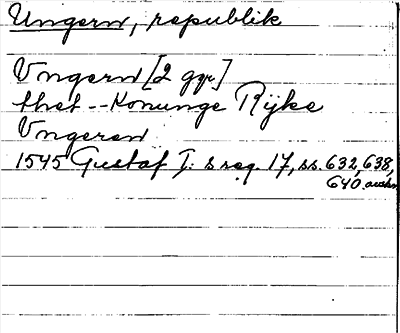 Ungern, republik
Vngern [2 ggr]
thet -- Konunge Rijke
Vngeren
1545 Gustaf I: s reg. 17, ss. 632, 638,
640